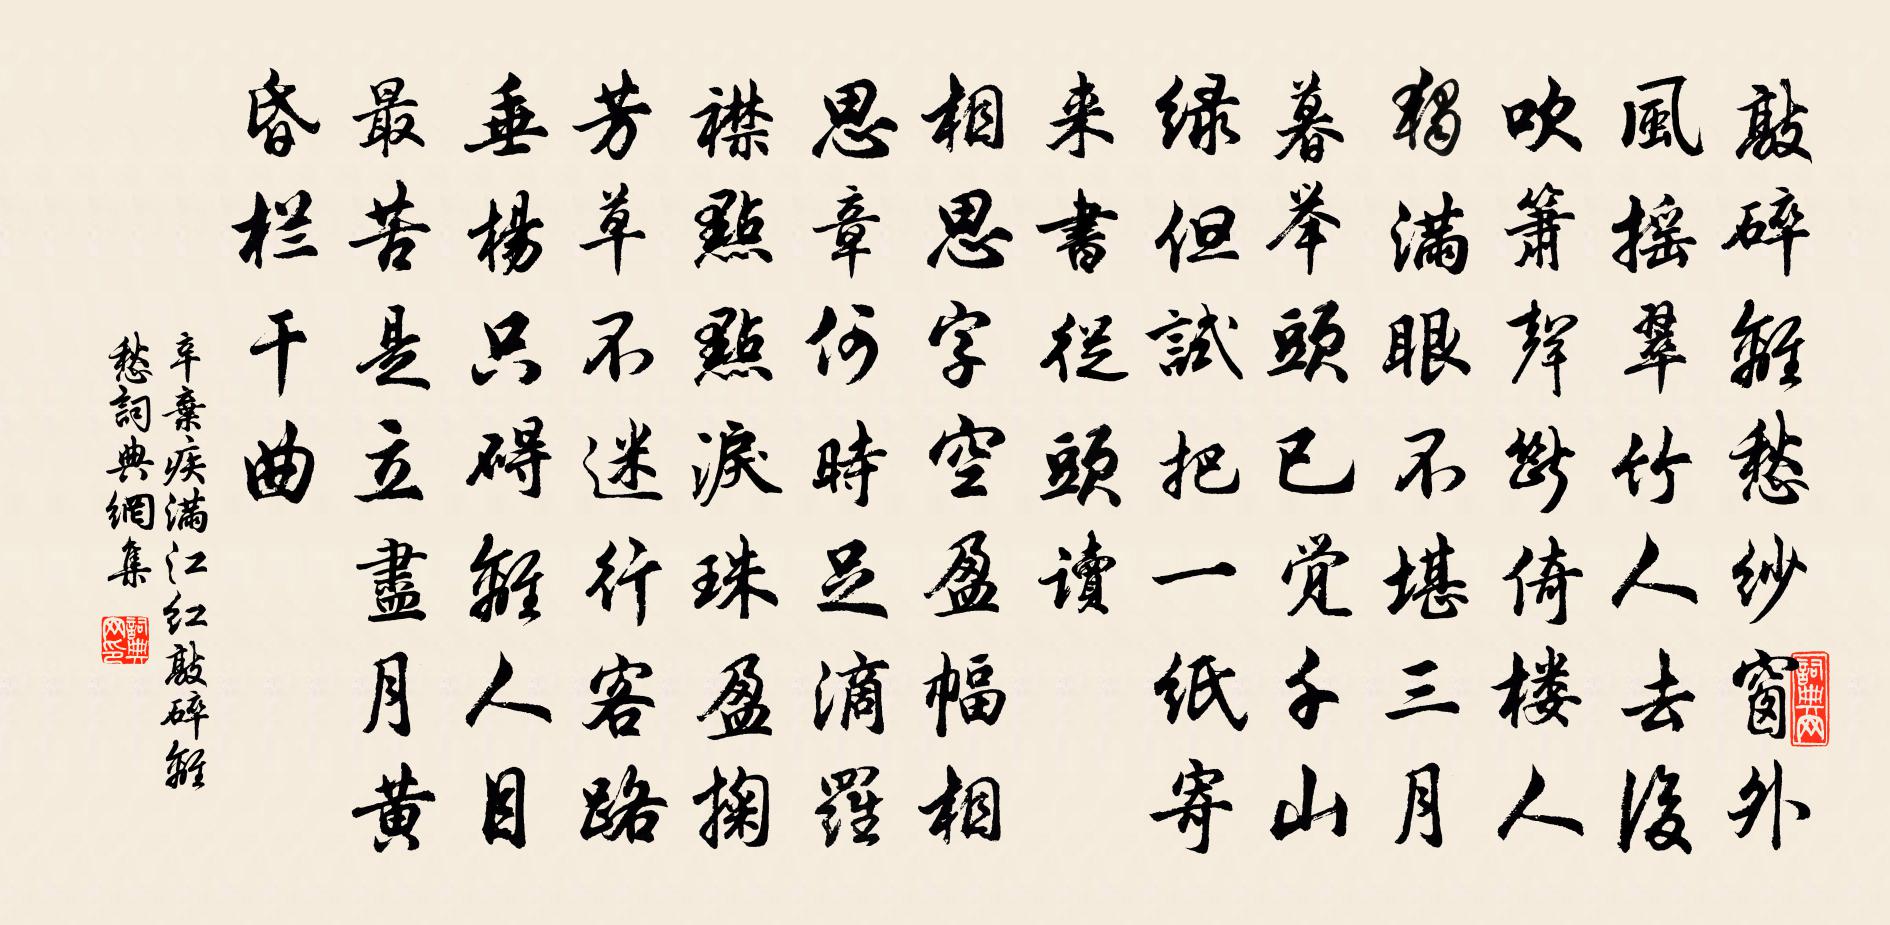 敲碎離愁紗窗外
風摇翠竹人去後
吹箫聲斷倚楼人
獨满眼不堪三月
暮举頭已觉千山
绿但試把一纸寄
来書從頭讀
相思字空盈幅相
思章何時足滴羅
襟點點淚珠盈掬
芳草不迷行客路
垂楊只碍離人目
最苦是立盡月黄
昏栏干曲
辛棄疾满江红敲碎離
愁詞典網集
詞典网
詞典网印